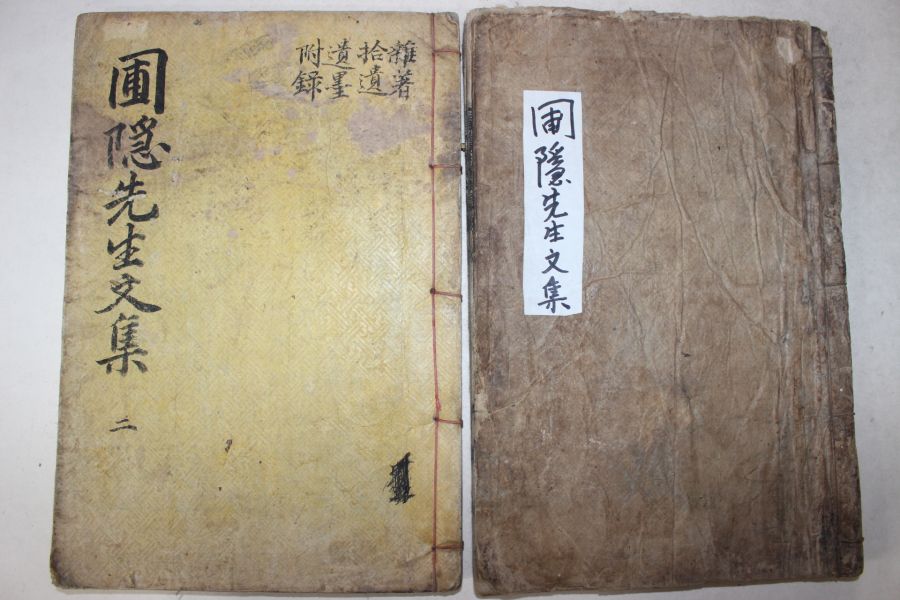 圃隱先生文集
二
雜著
拾遺
遺墨
附錄
圃隱先生文集